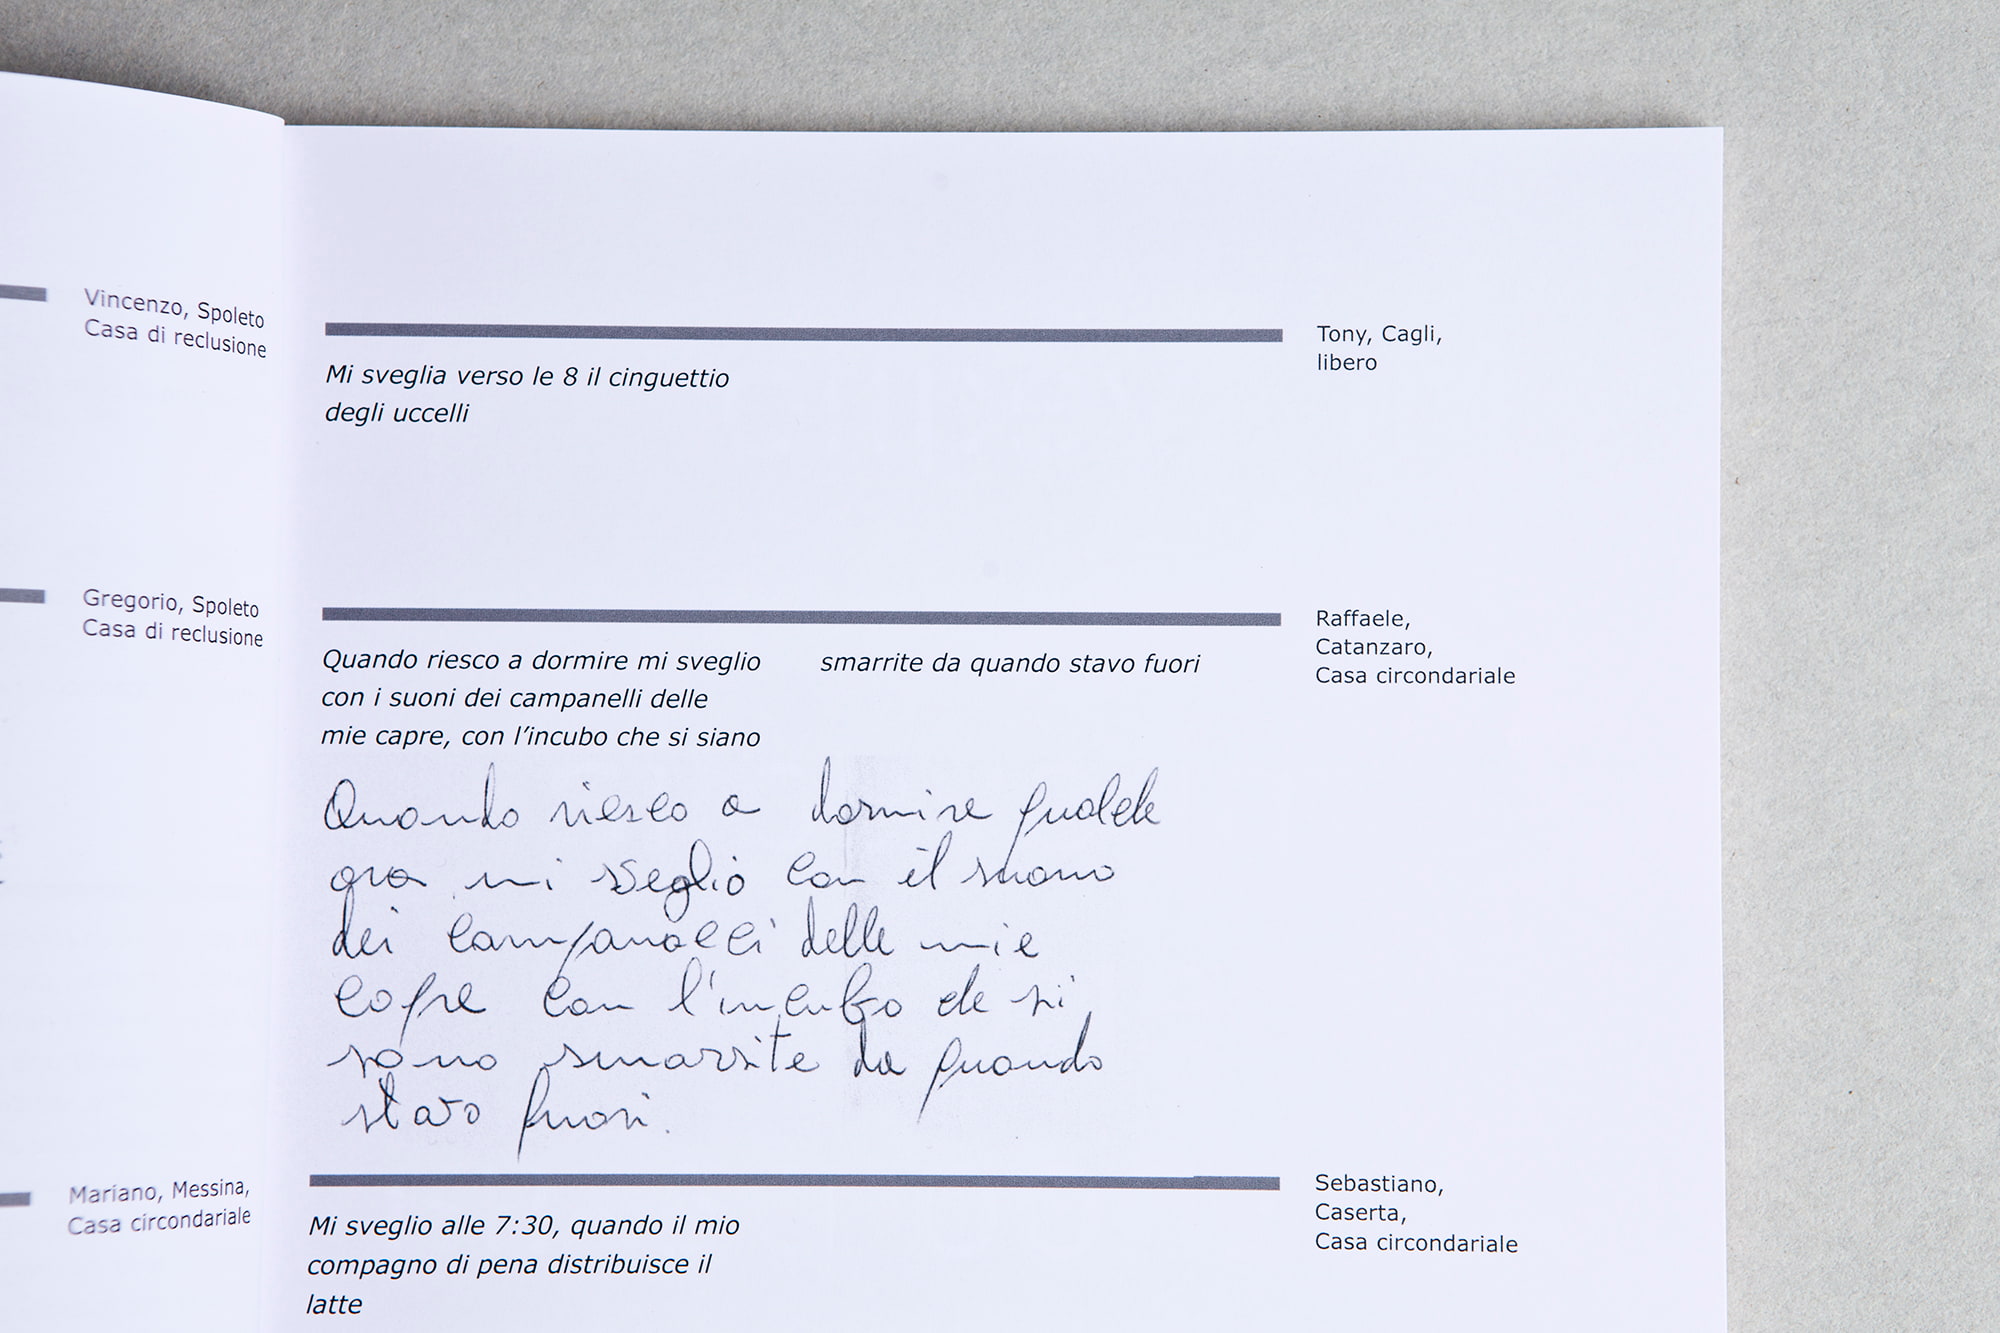 Vincenzo, Spoleto
Casa di reclusione
Gregorio, Spoleto
Casa di reclusione
Mariano, Messina,
Casa circondariale
Tony, Cagli,
libero
Mi sveglia verso le 8 il cinguettio
degli uccelli
Raffaele,
Catanzaro,
Casa circondariale
Quando riesco a dormire mi sveglio
con i suoni dei campanelli delle
mie capre, con l'incubo che si siano
smarrite da quando stavo fuori
Quando riesco a dormire qualche
ora mi sveglio con il suono
dei campanelli delle mie
capre con l'incubo che si
sono smarrite da quando
stavo fuori.
Sebastiano,
Caserta,
Casa circondariale
Mi sveglio alle 7:30, quando il mio
compagno di pena distribuisce il
latte